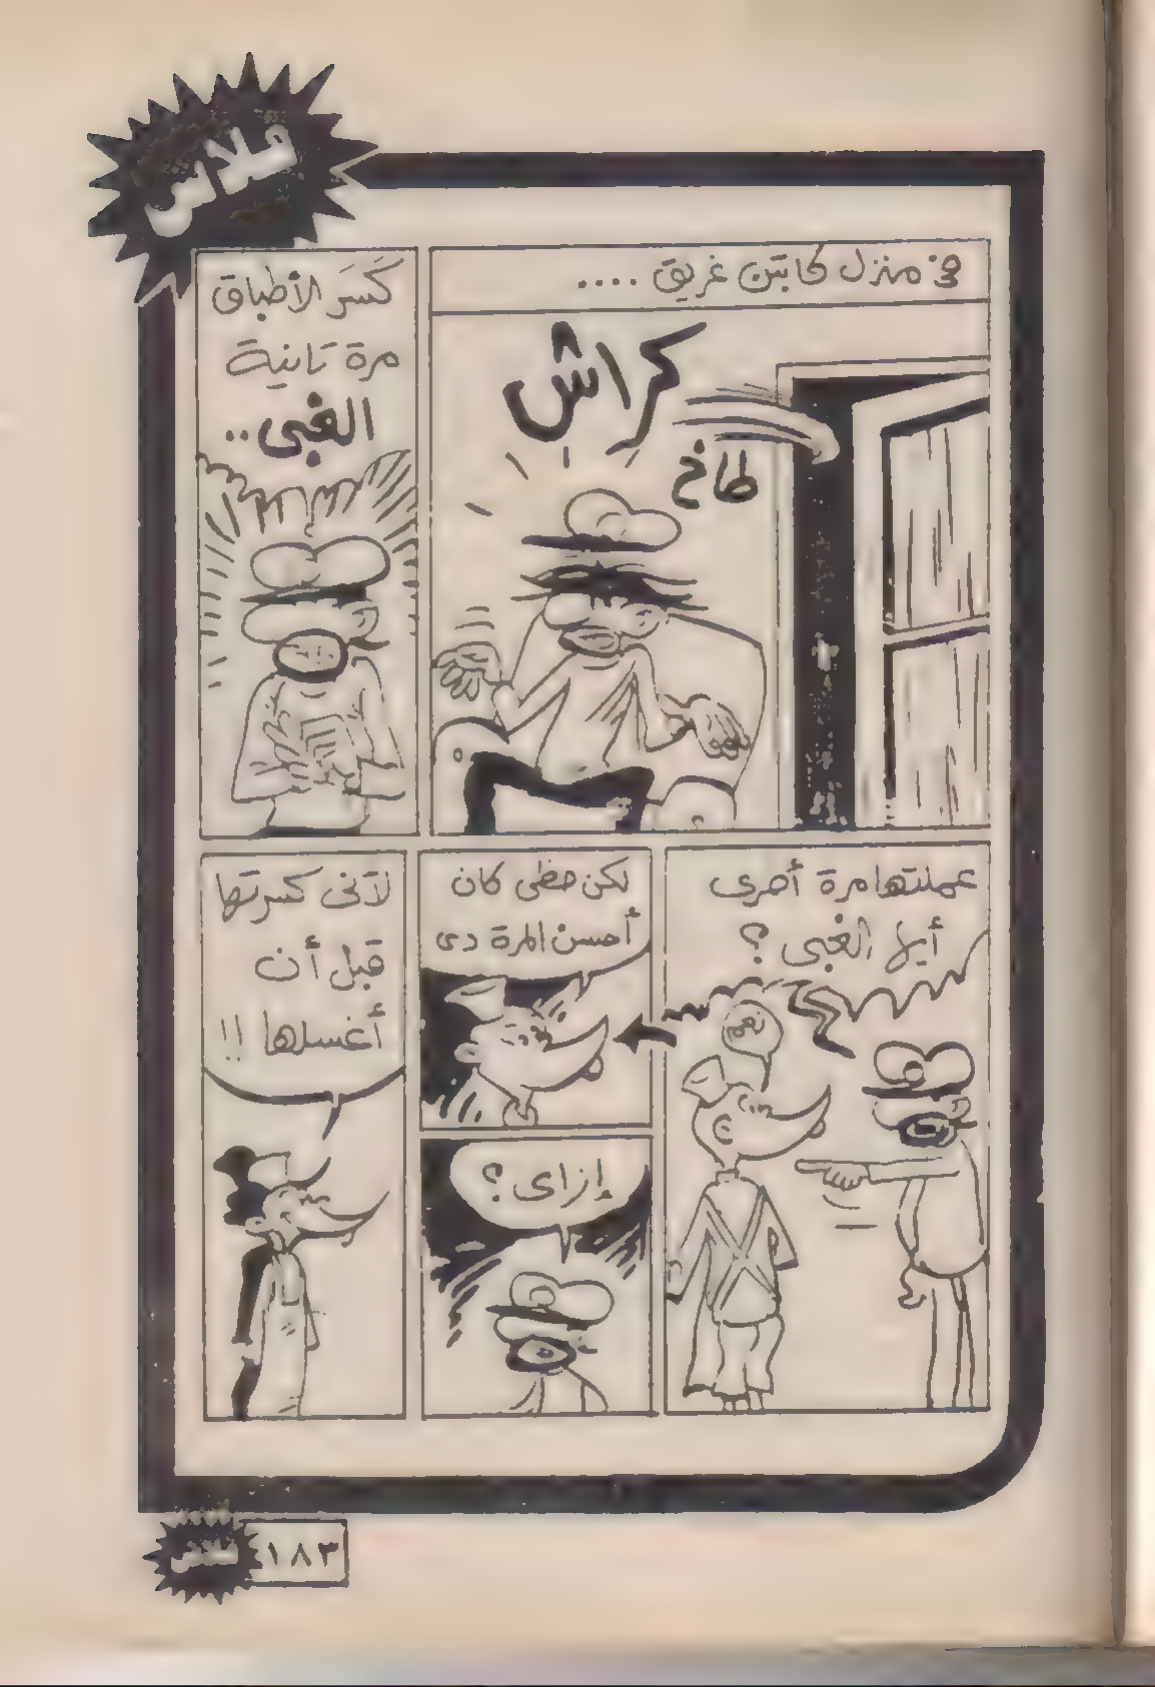 فلاش
فى منزل كابتن غريق....
كراش
طاخ
كَسَر الأطباق
مرة تانية
الغبى..
عملتها مرة أخرى
أيها الغبى؟
نعم
لكن حظى كان
أحسن المرة دى
إزاى؟
لأنى كسرتها
قبل أن
أغسلها !!
١٨٣
فلاش